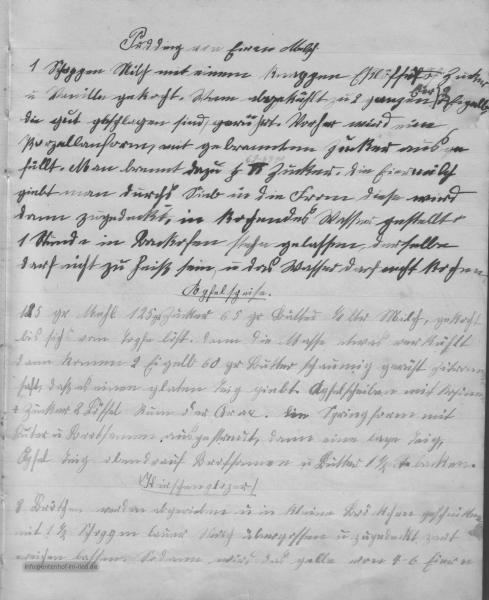 Pudding von Eiern Milch
1 Schoppen Milch mit einem knappen Zucker
u Vanille gekocht. Wenn abgekühlt, u ganzen Eigelb
die gut geschlagen sind, gerührt. Vorher wird eine
Porzellanform, mit gebranntem Zucker ausge
füllt. Man brennt dazu Zucker. Die Eiermilch
giebt man durchs Sieb in die Form diese wird
dann zugedeckt, in kochendes Wasser gestellt
1 Stunde in Backofen stehn gelassen, derselbe
darf nicht zu heiß sein, u das Wasser darf nicht kochen
Apfelspeise.
125 gr Mehl 125 gr Zucker 65 gr Butter 1/2 liter Milch, gekocht
bis sich vom Topfe löst. dann die Masse etwas verkühlt
dann kommen 2 Eigelb 60 gr Butter schaumig gerührt
daß es einen glatten Teig giebt. Apfelscheiben mit Rosinen
Zucker 2 Löffel Rum oder Arac. Die Springform mit
Butter u Brotkrumen ausgestreut, dann eine lage Teig,
Apfel Teig obendrauf Brotkrumen u Butter 1 1/2 St backen.
Kirschenplozer
8 Brötchen werden abgerieben u in kleine Bröckchen geschnitten
mit 1 1/2 Schoppen lauer Milch übergossen u zugedeckt
weichen lassen. Sodann wird das gelbe von 4-6 Eiern